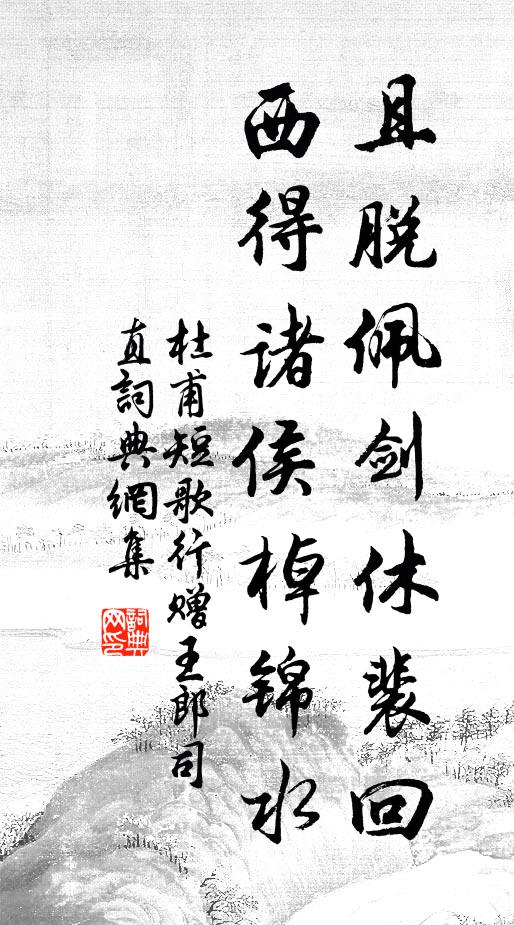 且脱佩剑休裴回
西得诸侯棹锦水
杜甫短歌行赠王郎司
直詞典網集
詞典网印